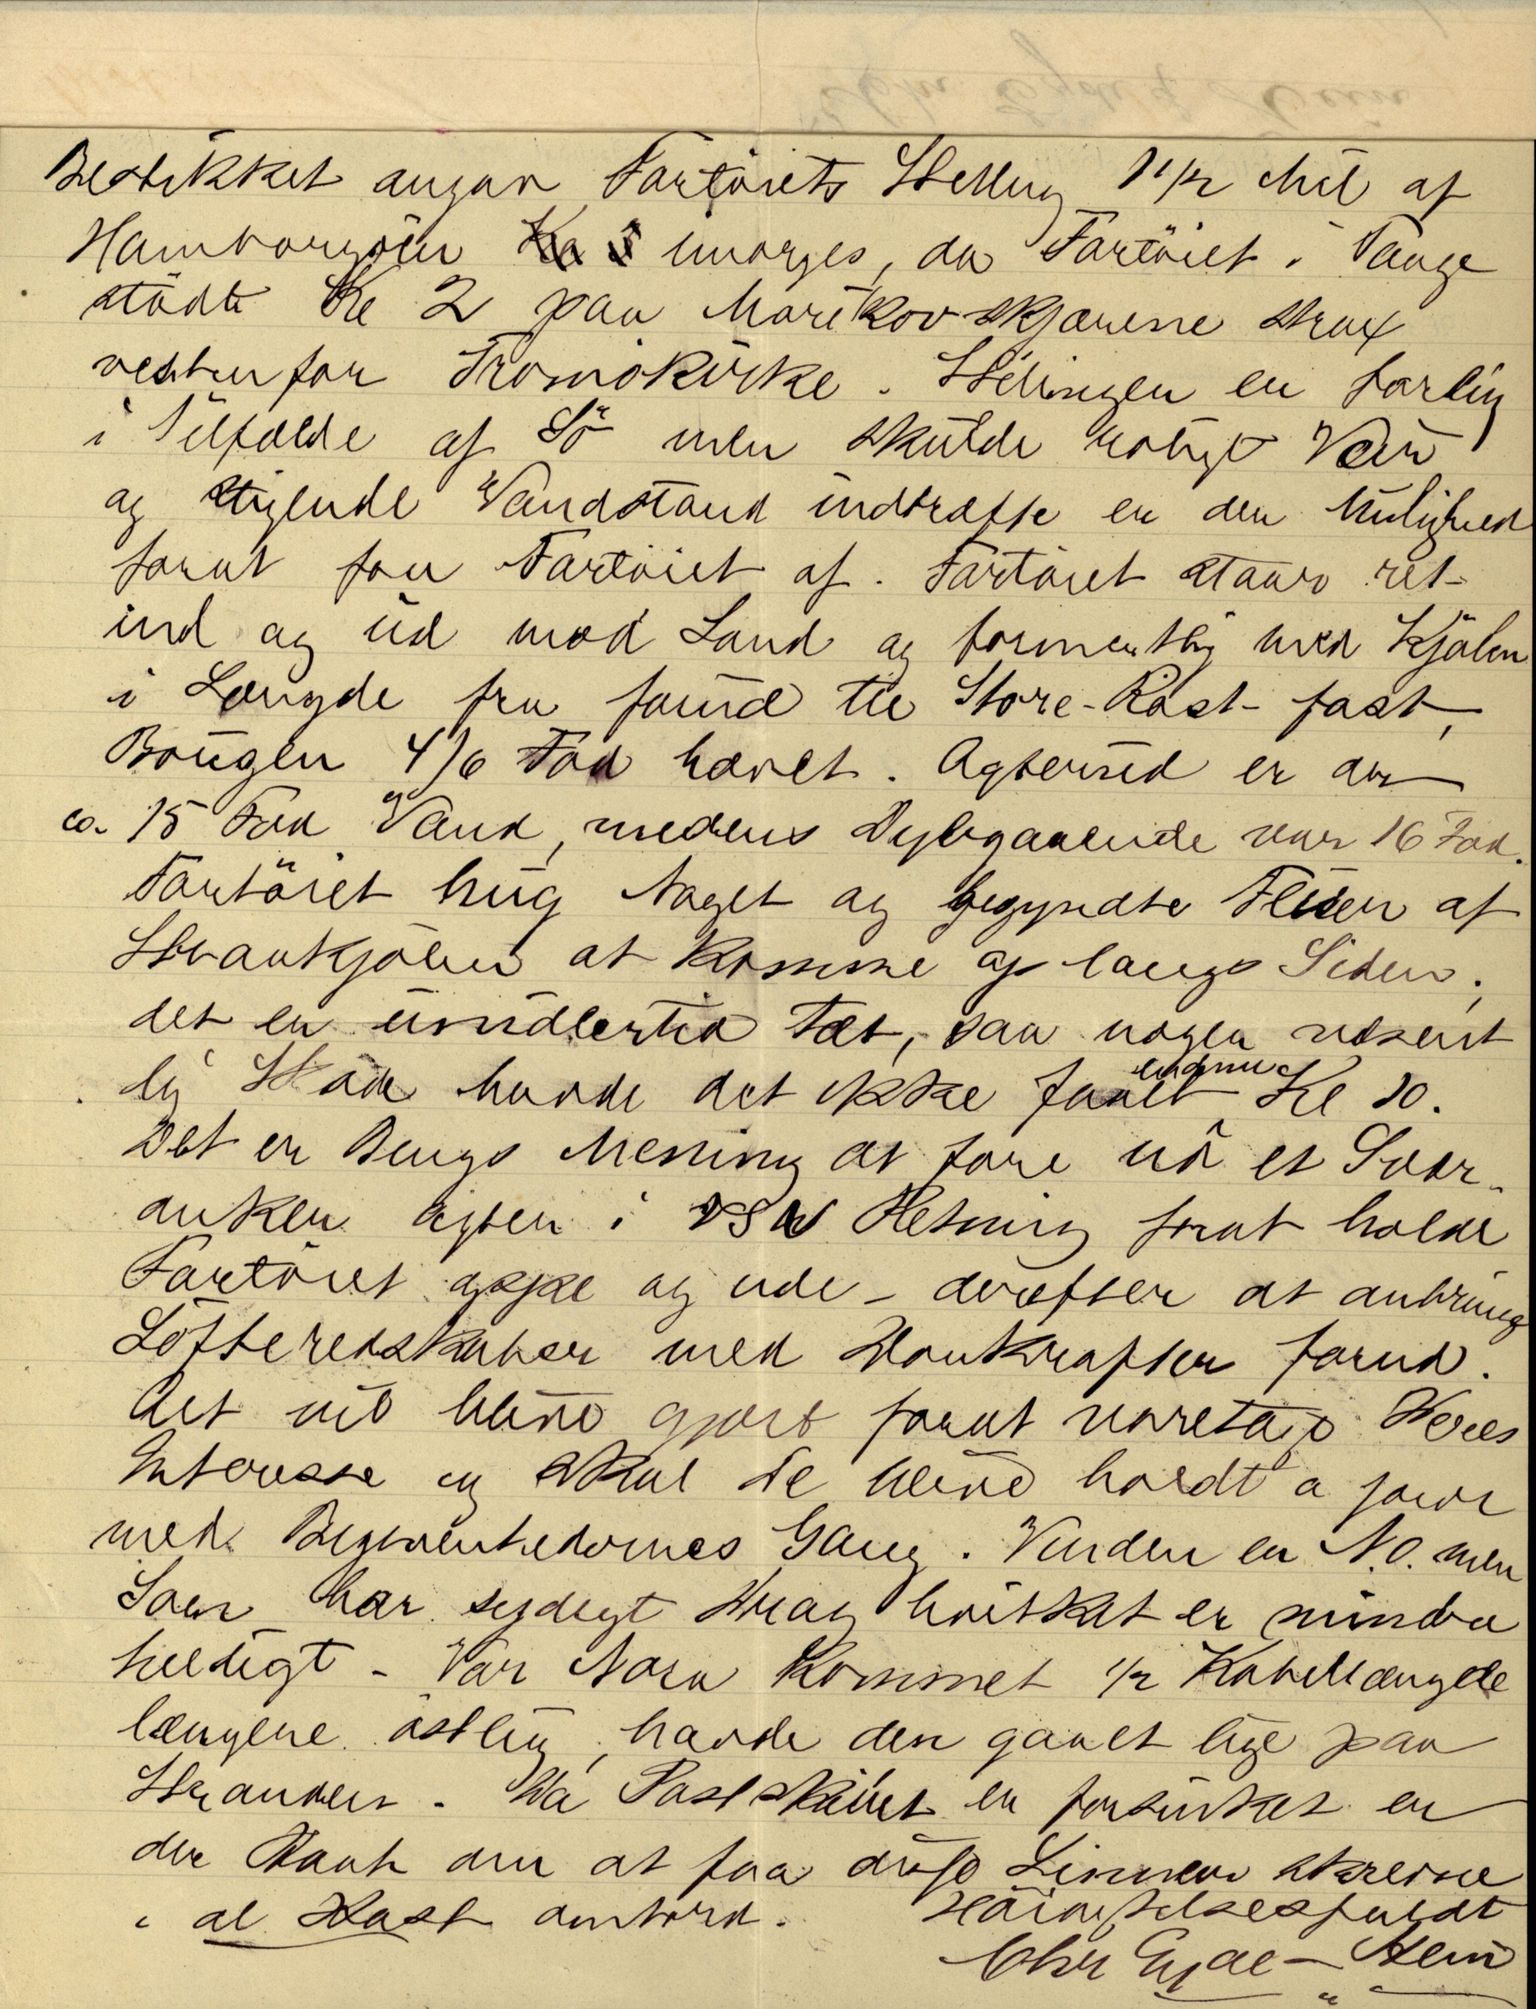 Bestikket angav Fartöiets Stilling 11/2 Mil af
Hamborgöen imorges, da Fartöiet i Taage
stödte Kl 2 paa Mærikovskjærene strax
vestenfor Tromökirke. Stillingen er farlig
i Tilfælde af Sö men skulde roligt Veir
og stigende Vandstand indtræffe er der Mulighed
forat faa Fartöiet af. Fartöiet staar ret
ind og ud mod Land og formentlig med Kjölen
i Længde fra forud til Store-Rost fast,
Bougen 4/6 Fod hævet. Agterud er der
ca. 15 Fod Vand, medens Dybgaaende var 16 Fod.
Fartöiet hug Noget og begyndte Fliser af
Straakjölen at komme op langs Siden;
det er imidlertid tæt, saa nogen væsent
lig Skade havde det ikke faaet endnu Kl 10.
Det er Bergs Mening at före ud et Svær-
anker agter i VSW Retning forat holde
Fartöiet oppe og ude - derefter at anbringe
Löfteredskaber med Donkrafter forud.
Alt vil blive gjort forat varetage Deres
Interesse og skal De blive holdt a jour
med Begivenhedernes Gang. Vinden er N.O. men
Söen har sydligt Drag hvilket er mindre
heldigt - Var Nora kommet 1/2 Kabellængde
længere östlig, havde den gaaet lige paa
Stranden. Da Postskibet er forsinket er
der Haab om at faa disse Linier skrevne
i al Hast ombord. Höiagtelsesfuldt
Chr Eyde - Sten